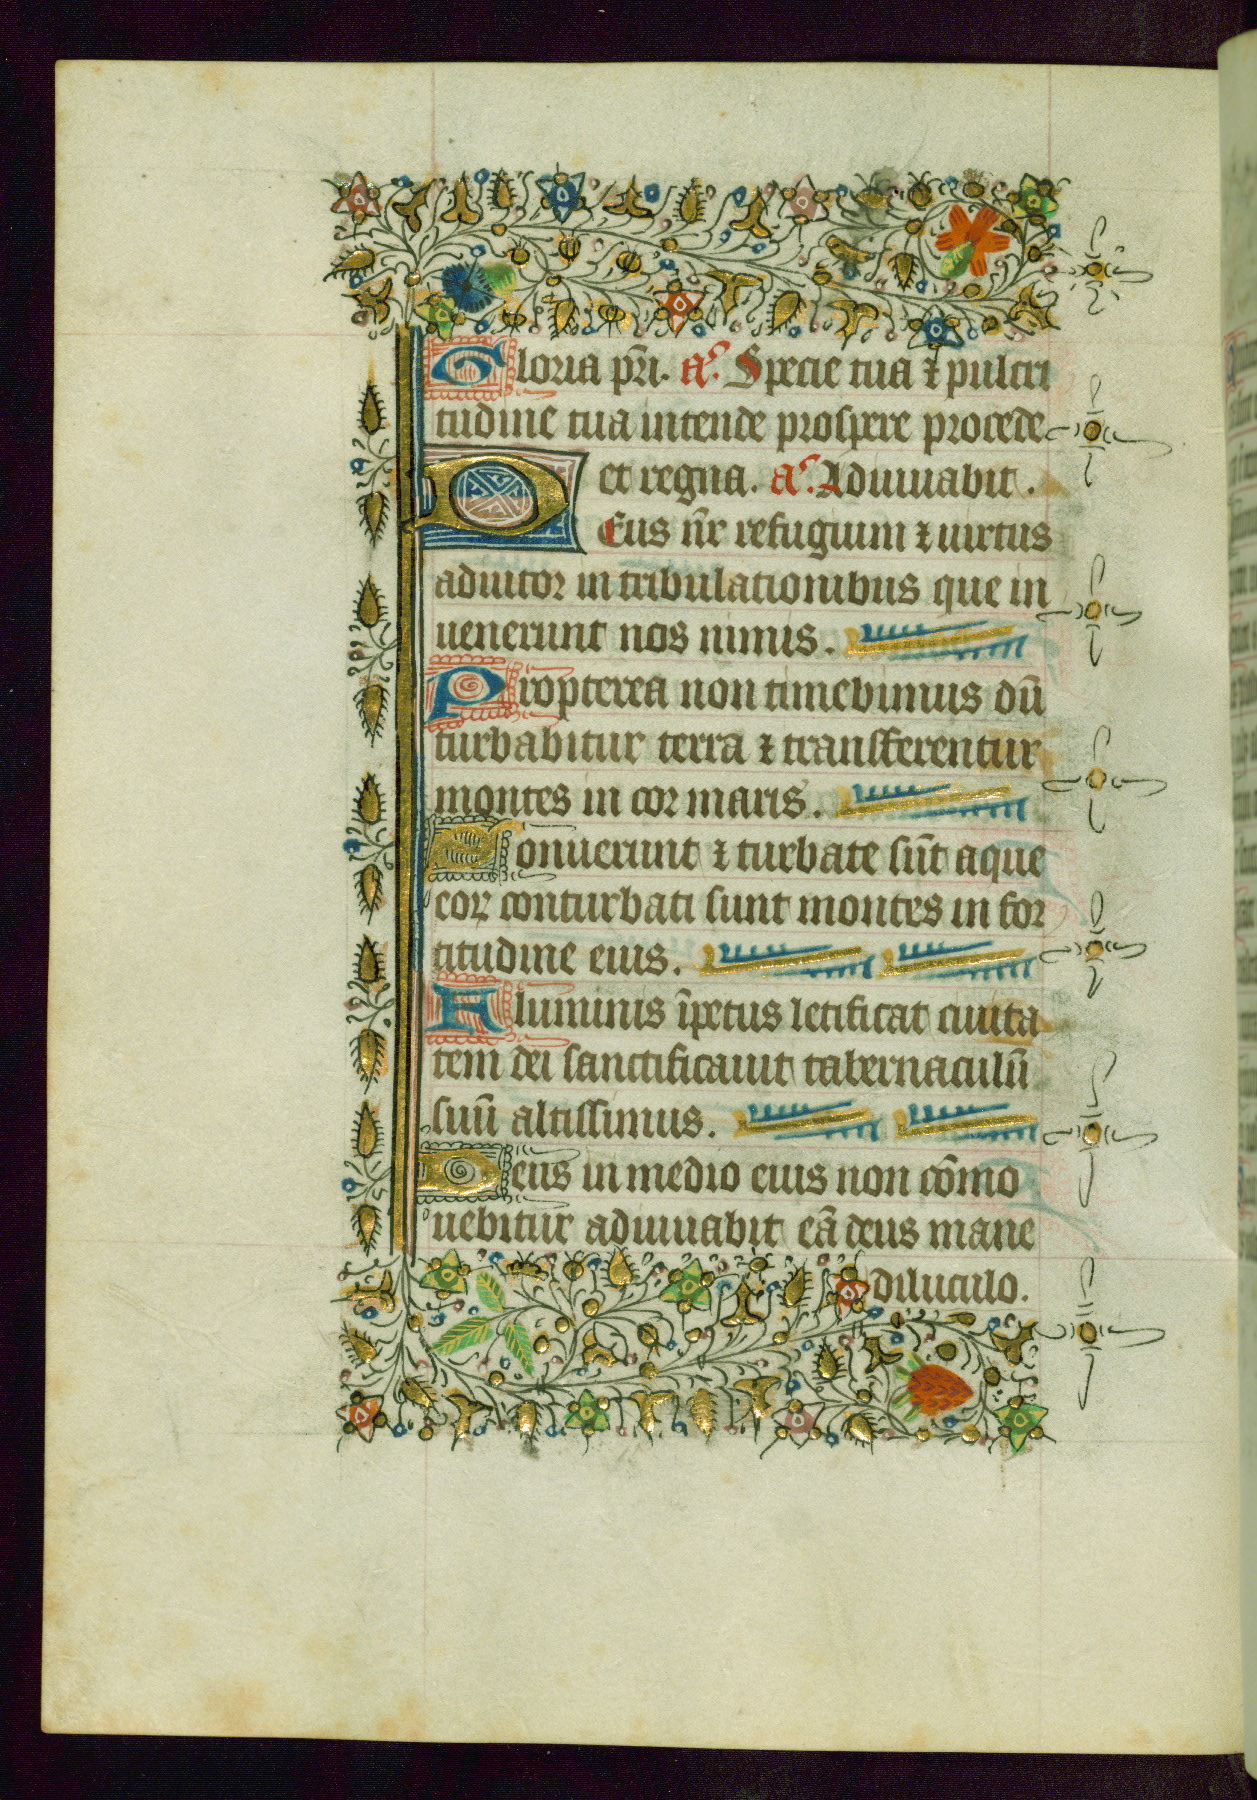 Gloria pr̄i. aͥ. Specie tua ⁊ pulcri
tudine tua intende prospere procede
et regna. aͥ. Adiuuabit.
DEus nr̄ refugium ⁊ uirtus
adiutor in tribulationibus que in
uenerunt nos nimis.
Propterea non timebimus dū
turbabitur terra ⁊ transferentur
montes in cor maris.
Sonuerunt ⁊ turbate sūt aque
eoꝝ conturbati sunt montes in for
titudine eius.
Fluminis īpetus letificat ciuita
tem dei sanctificauit tabernaculū
suū altissimus.
Deus in medio eius non cōmo
uebitur adiuuabit eā deus mane
diluculo.